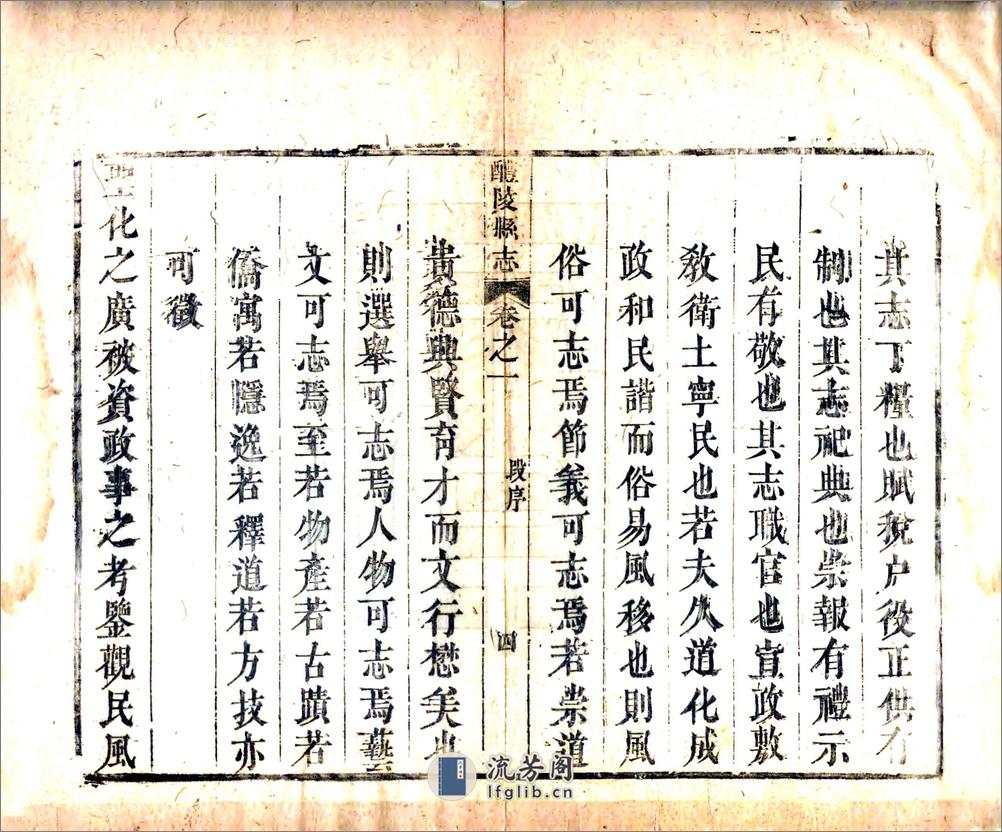 其志丁糧也賦稅户役正供有
制也其志祀典也崇報有禮示
民有敬也其志職官也宣政敷
教衛土寧民也若夫久道化成
政和民諧而俗易風移也則風
俗可志焉節義可志焉若崇道
醴陵縣志 卷之一 段序 四
貴德興賢育才而文行懋矣也
則選舉可志焉人物可志焉藝
文可志焉至若物產若古蹟若
僑寓若隱逸若釋道若方技亦
可徵
聖化之廣被資政事之考鑒觀民風
流芳阁
lfglib.cn